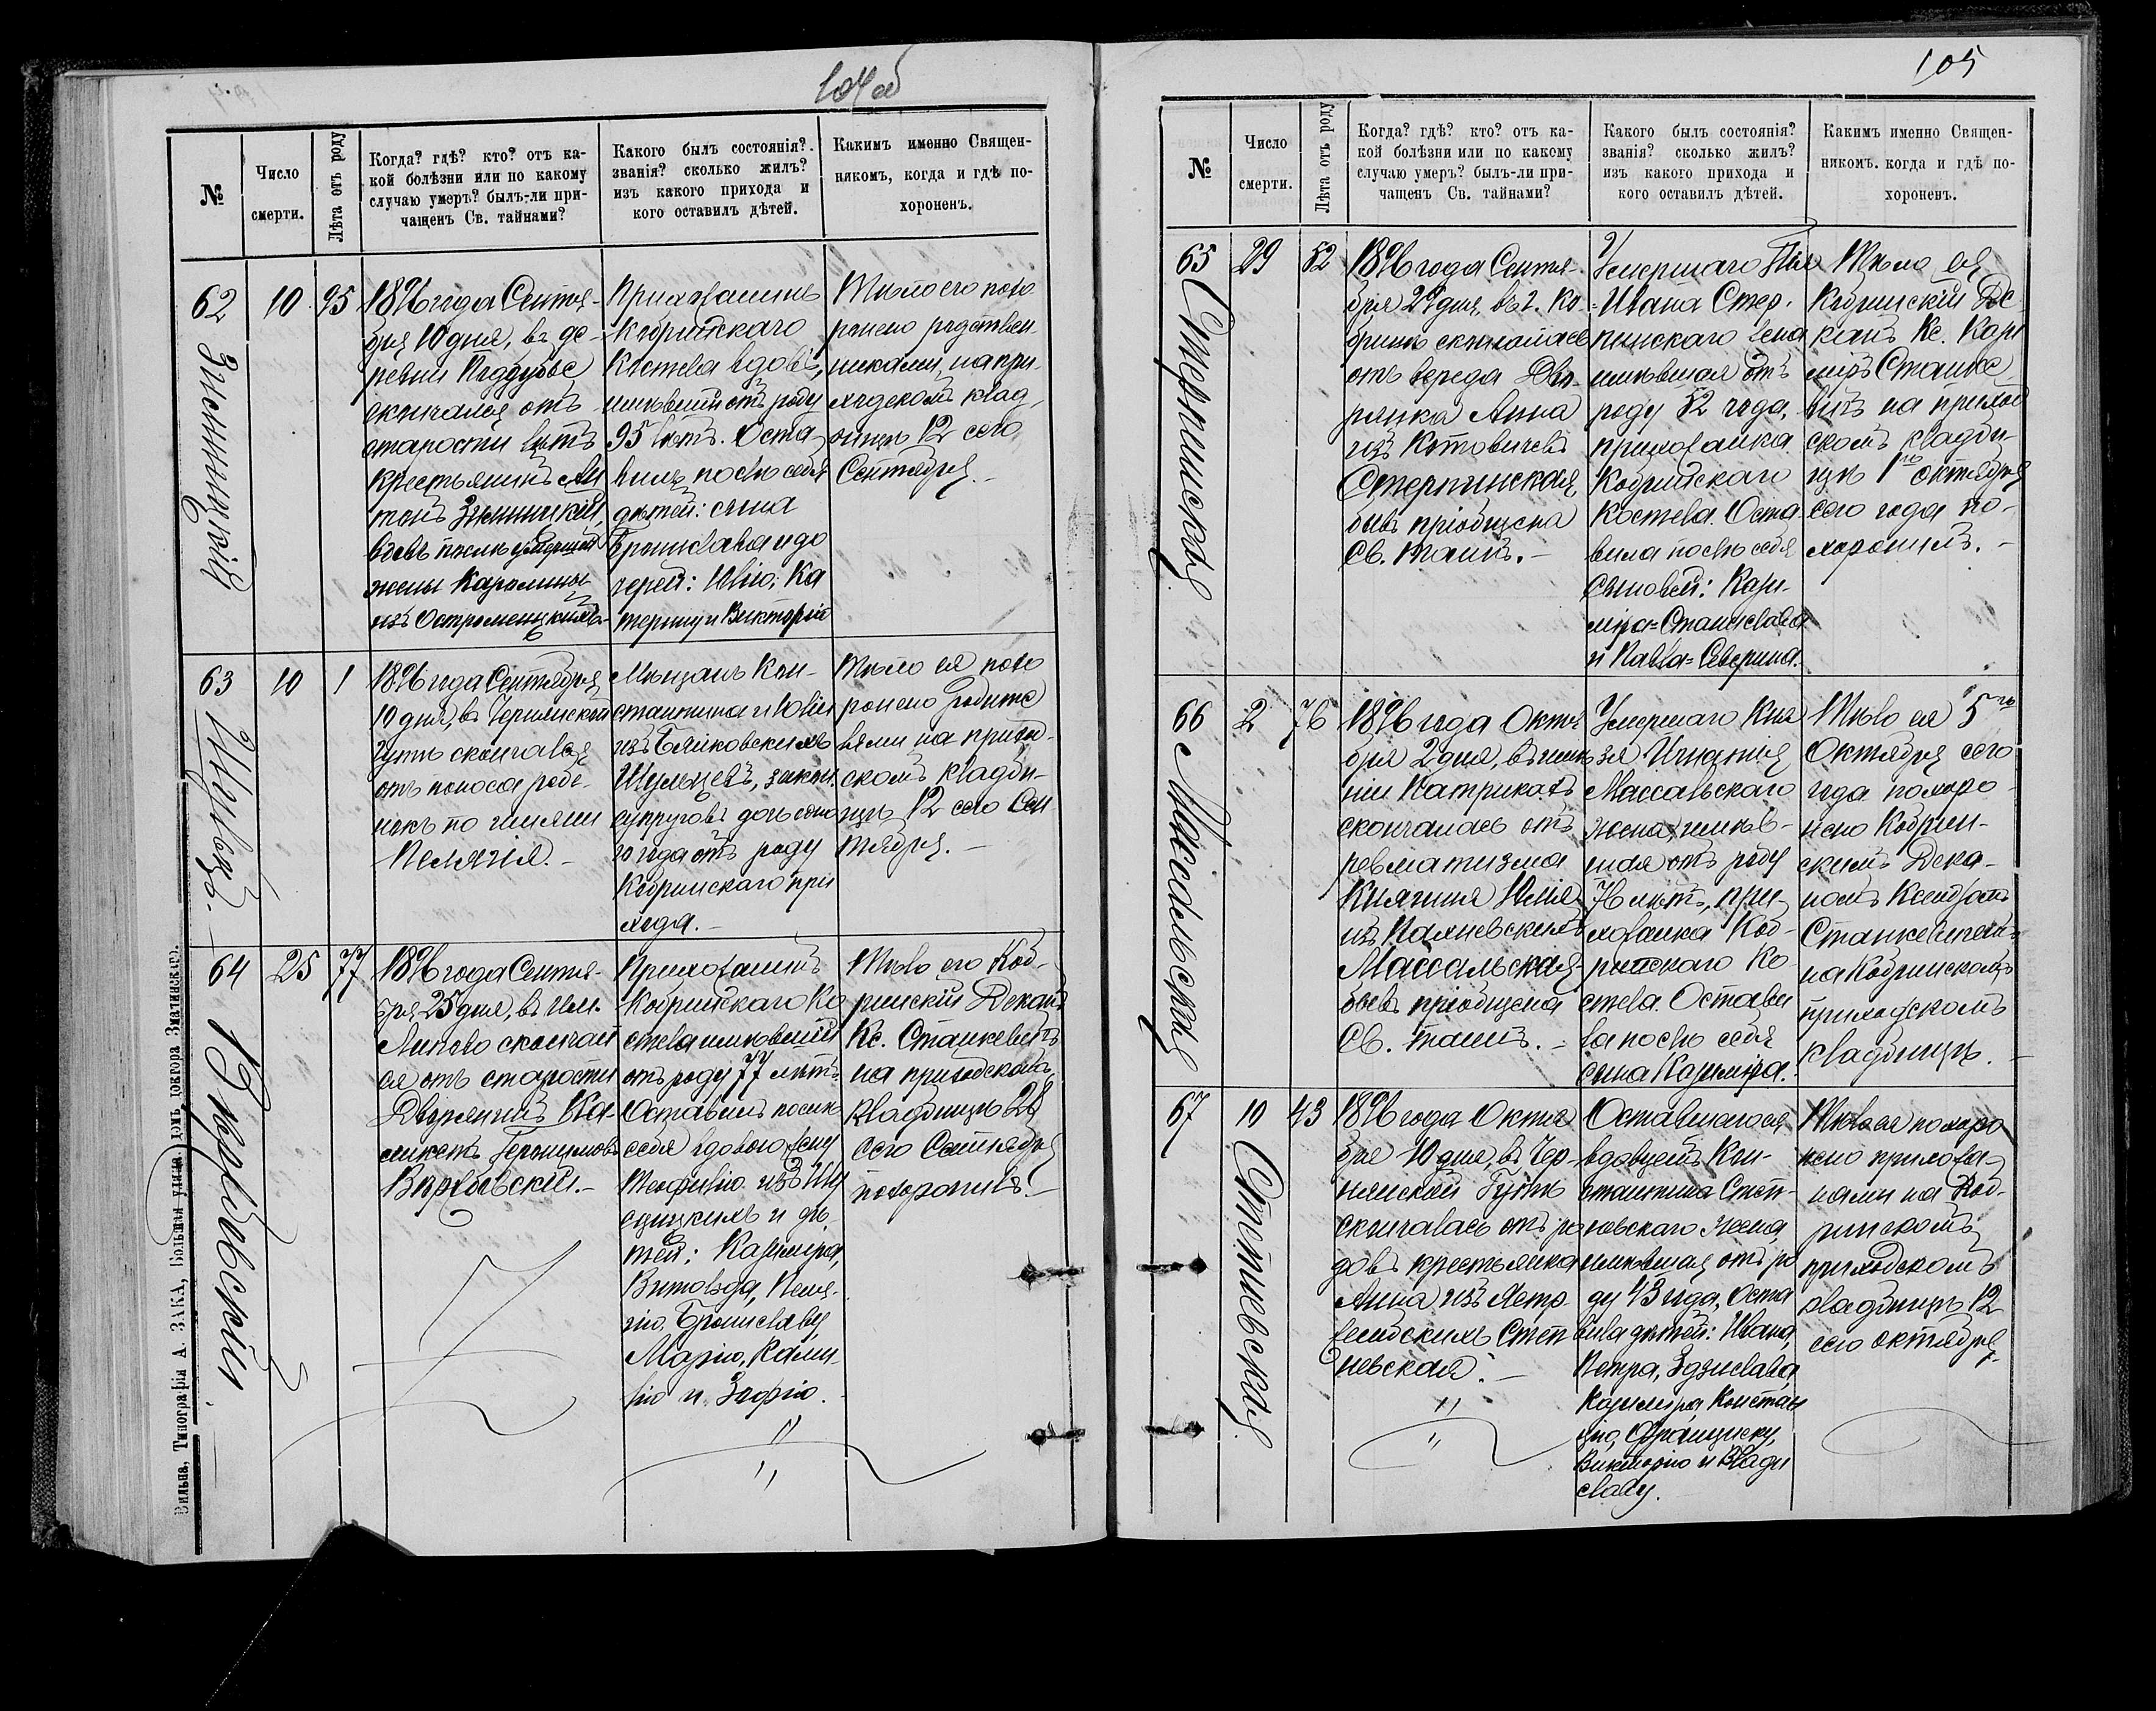 104об
№
Число
смерти.
Лѣта отъ роду
Когда? гдѣ? кто? отъ ка-
кой болѣзни или по какому
случаю умеръ? былъ-ли при-
чащенъ Св. тайнами?
Какого былъ состоянія?
званія? сколько жилъ?
изъ какого прихода и
кого оставилъ дѣтей.
Какимъ именно Священ-
никомъ, когда и гдѣ по-
хороненъ.
62
Зинницкій
10
95
1896 года Сентя-
бря 10 дня, въ де-
ревни Поддубье
скончался отъ
старости лѣтъ
крестьянинъ Ан
тонъ Зинницкій,
вдовъ послѣ умершей
жены Каролины
изъ Остромецкихъ
Прихожанинъ
Кобринскаго
Костела вдовъ,
имѣвшій отъ роду
95 лѣтъ. Оста
вилъ послѣ себя
дѣтей: сына
Бронислава и до
черей: Юлію, Ка
терину и Викторію
Тѣло его похо
ронено родствен
никами, на при-
ходскомъ клад
бищѣ 12 сего
Сентября.-
63
Шульцъ.
10
1
1896 года Сентября
10 дня, въ Чернянской
Гутѣ скончался
отъ поноса ребе-
нокъ по имени
Пелагія.-
Мѣщанъ Кон-
стантина и Юліи
изъ Бѣлковскихъ
Шульцевъ, закон.
супруговъ дочь одно
го года отъ роду
Кобринскаго при
хода.-
Тѣло ея похо
ронено родите
лями на приход-
скомъ кладби-
щѣ 12 сего Сен
тября.-
64
Вержбовскій
25
77
1896 года Сентя-
бря 25 дня, въ им.
Липово сконча
ся отъ старости
Дворянинъ Ка-
ликстъ Геронимовъ
Вержбовскій.-
Прихожанинъ
Кобринскаго Ко
стела имѣвшій
отъ роду 77 лѣтъ
Оставилъ послѣ
себя вдовою жену
Теофилію изъ
и дѣ
тей: Казимира,
Витольда, Пела-
гію, Брониславу,
Марію, Ками-
лію и Зофію.
Тѣло его Коб-
ринскій Деканъ
Кс. Станкевичъ
на приходскомъ
кладбищѣ 28
сего Сентября
похоронилъ.-
Вильна, Типографія А. ЗАКА, Большая улица домъ доктора Зматинскаго.
105
№
Число
смерти.
Лѣта отъ роду
Когда? гдѣ? кто? отъ ка-
кой болѣзни или по какому
случаю умеръ? былъ-ли при-
чащенъ Св. тайнами?
Какого былъ состоянія?
званія? сколько жилъ?
изъ какого прихода и
кого оставилъ дѣтей.
Какимъ именно Священ-
никомъ. когда и гдѣ по-
хороненъ.
65
Стерпинская
29
52
1896 года Сентя-
бря 29 дня, въ г. Ко-
бринѣ скончалась
отъ вереда Дво-
рянка Анна
изъ Котовичевъ
Стерпинская,
бывъ пріобщена
Св. таинъ.-
Умершаго
Ивана Стер-
пинскаго жена
имѣвшая отъ
роду 52 года,
прихожанка
Кобринскаго
Костела. Оста
вила послѣ себя
сыновей: Кази-
міра=Станислава
и Павла=Северина.
Тѣло ея
Кобринскій Де
канъ Кс. Кази
міръ Станке
вичъ на приход
скомъ кладби-
щѣ 1го октября
сего года по-
хоронилъ.-
66
Массальская
2
76
1896 года Октя
бря 2 дня, въ имѣ
ніи Патрикахъ
скончалась отъ
ревматизма
Княгиня Юлія
изъ
Массальская,
бывъ пріобщена
Св. таинъ.-
Умершаго Кня
зя Игнатія
Массальскаго
жена, имѣв-
шая отъ роду
76 лѣтъ, при-
хожанка Коб-
ринскаго Ко
стела. Остави
ла послѣ себя
сына Казиміра.
Тѣло ея 5го
Октября сего
года похоро-
нено Кобрин-
скимъ Дека-
номъ Ксендзомъ
Станкевичемъ
на Кобринскомъ
приходскомъ
кладбищѣ.-
67
Степневская
10
43
1896 года Октя
бря 10 дня, въ Чер-
нянской Гутѣ
скончалась отъ ро
довъ крестьянка
Анна изъ Ястр-
жембскихъ Степ
невская.-
Оставшагося
вдовцемъ Кон-
стантина Степ-
невскаго жена,
имѣвшая отъ ро
ду 43 года, Оста
вила дѣтей: Ивана,
Петра, Здзислава,
Казиміра, Констан
цію, Францишку,
Викторію и Влади
славу.
Тѣло ея похоро
нено прихожа-
нами на Коб-
ринскомъ
приходскомъ
кладбищѣ 12
сего октября.